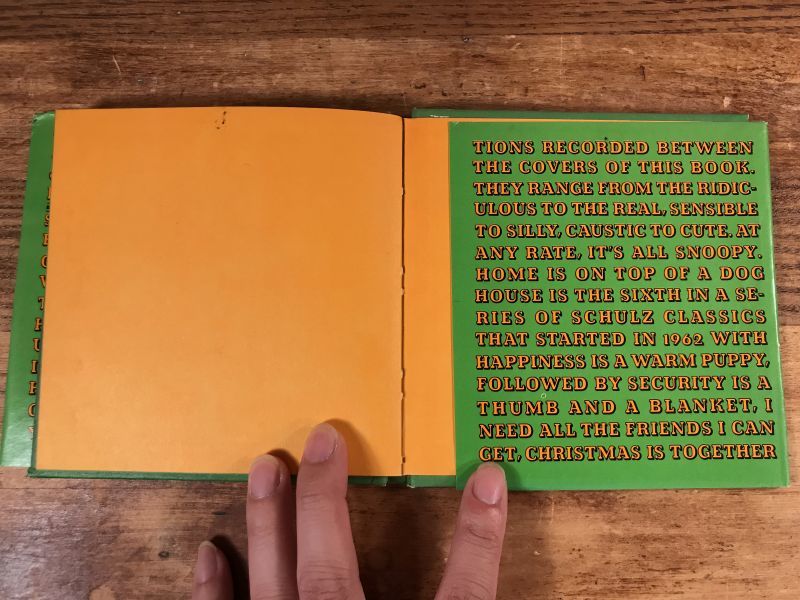 TIONS RECORDED BETWEEN
THE COVERS OF THIS BOOK.
THEY RANGE FROM THE RIDIC-
ULOUS TO THE REAL, SENSIBLE
TO SILLY, CAUSTIC TO CUTE. AT
ANY RATE, IT'S ALL SNOOPY.
HOME IS ON TOP OF A DOG
HOUSE IS THE SIXTH IN A SE-
RIES OF SCHULZ CLASSICS
THAT STARTED IN 1962 WITH
HAPPINESS IS A WARM PUPPY,
FOLLOWED BY SECURITY IS A
THUMB AND A BLANKET, I
NEED ALL THE FRIENDS I CAN
GET, CHRISTMAS IS TOGETHER